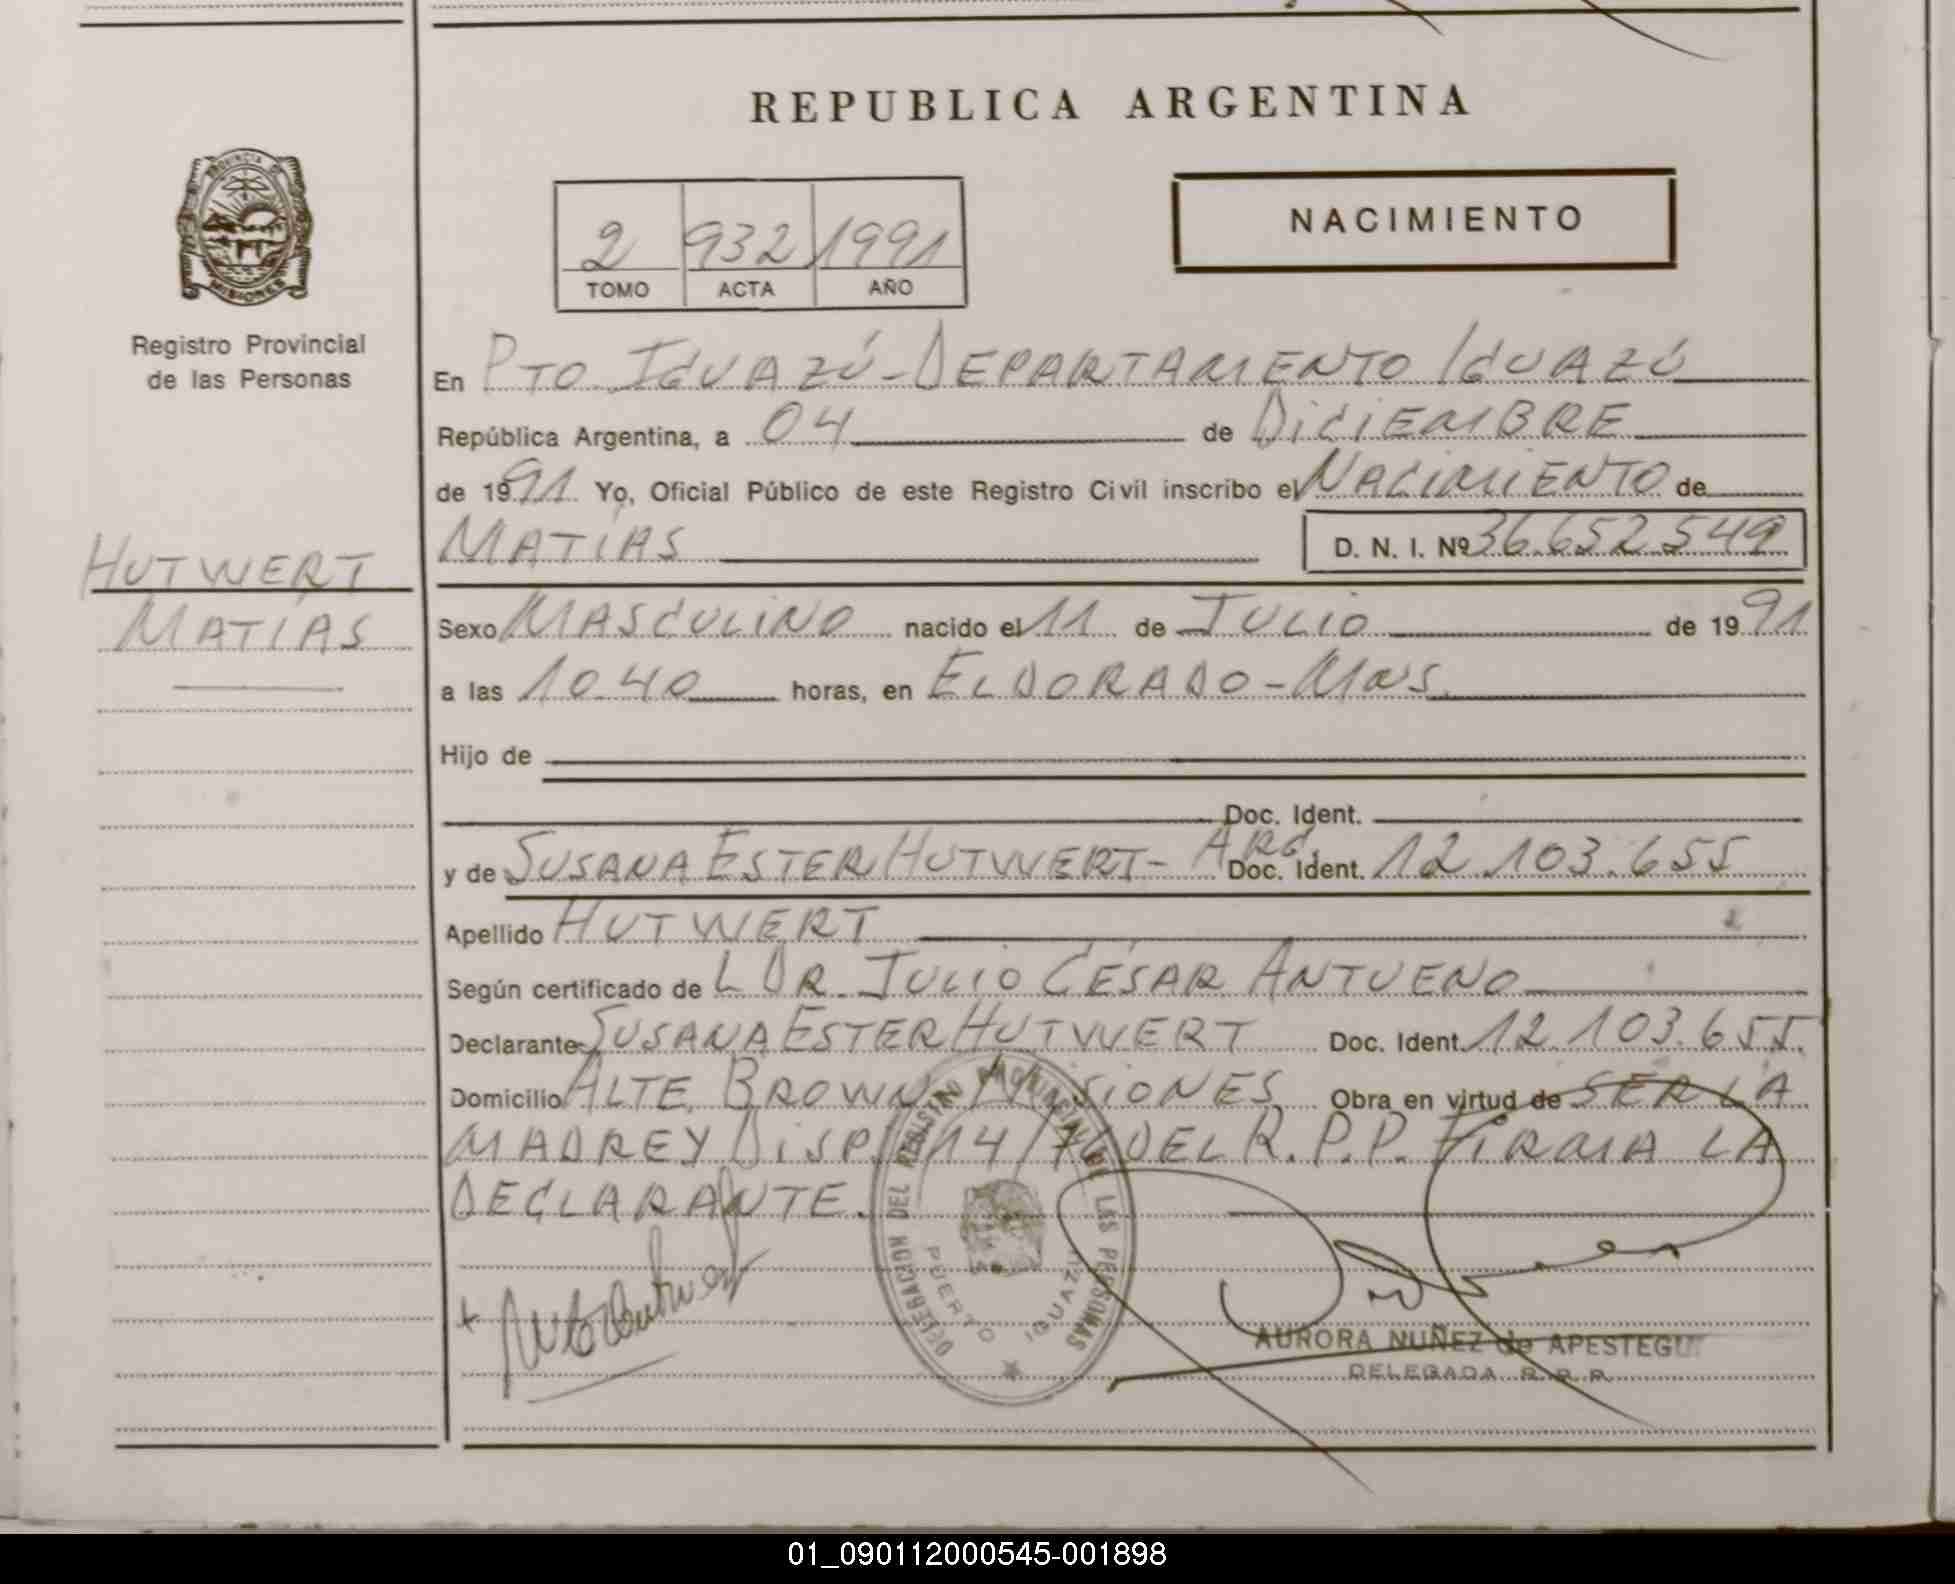 REPUBLICA ARGENTINA
PROVINCIA DE
MISIONES
Registro Provincial
de las Personas
NACIMIENTO
2 932 1991
TOMO ACTA AÑO
En PTO. IGUAZÚ-DEPARTAMENTO IGUAZÚ
República Argentina, a 04 de DICIEMBRE
de 1991 Yo, Oficial Público de este Registro Civil inscribo el NACIMIENTO de
MATÍAS D. N. I. Nº 36.652.549
HUTWERT
MATÍAS
Sexo MASCULINO nacido el 11 de JULIO de 1991
a las 10.40 horas, en ELDORADO-Mns.
Hijo de
Doc. Ident.
y de SUSANA ESTER HUTWERT- ARG. Doc. Ident. 12.103.655
Apellido HUTWERT
Según certificado de L DR. JULIO CÉSAR ANTUENO
Declarante SUSANA ESTER HUTWERT Doc. Ident. 12.103.655.
Domicilio ALTE. BROWN. MISIONES Obra en virtud de SER LA
MADRE Y DISP. 14/76 DEL R.P.P. FIRMA LA
DECLARANTE.
DELEGACION DEL REGISTRO PROVINCIAL DE LAS PERSONAS
PUERTO IGUAZU
AURORA NUÑEZ de APESTEGUI
DELEGADA R.P.P.
01_090112000545-001898